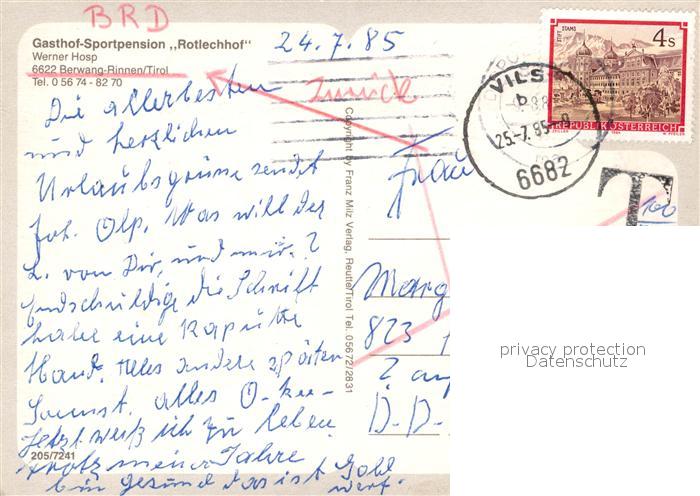 BRD
Gasthof-Sportpension „Rotlechhof"
Werner Hosp
6622 Berwang-Rinnen/Tirol
Tel. 0 56 74 - 82 70
24.7.85
Zurück
Die allerbesten
und herzlichen
Urlaubsgrüsse sendet
Joh. Olp. Was will der
L. von Dir, und mir?
Endschuldige die Schrift
habe eine kaputte
Hand. Alles andere später
Sonnst. alles O-kee-
Jetzt weiß ich zu leben
trotz meiner Jahre
bin gesund das ist Gold
wert.
205/7241
Copyright by Franz Milz Verlag, Reutte/Tirol Tel. 05672/2831
4s
STIFT STAMS
REPUBLIK ÖSTERREICH
VILS
b
25.-7.85-9
6682
T
100
Frau
Marg
823
? an
D.-D.-
privacy protection
Datenschutz